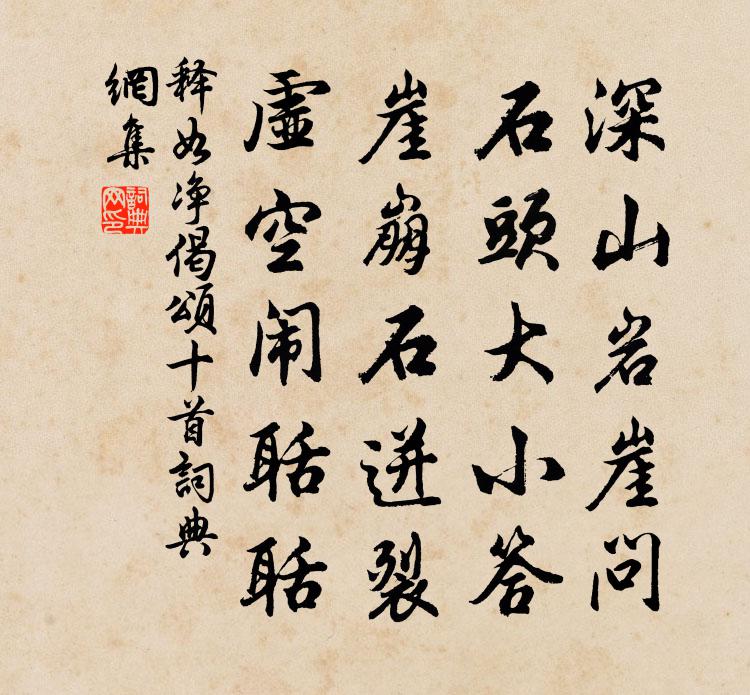 深山岩崖問
石頭大小答
崖崩石迸裂
虛空闹聒聒
释如净偈頌十首詞典
網集
詞典
网印